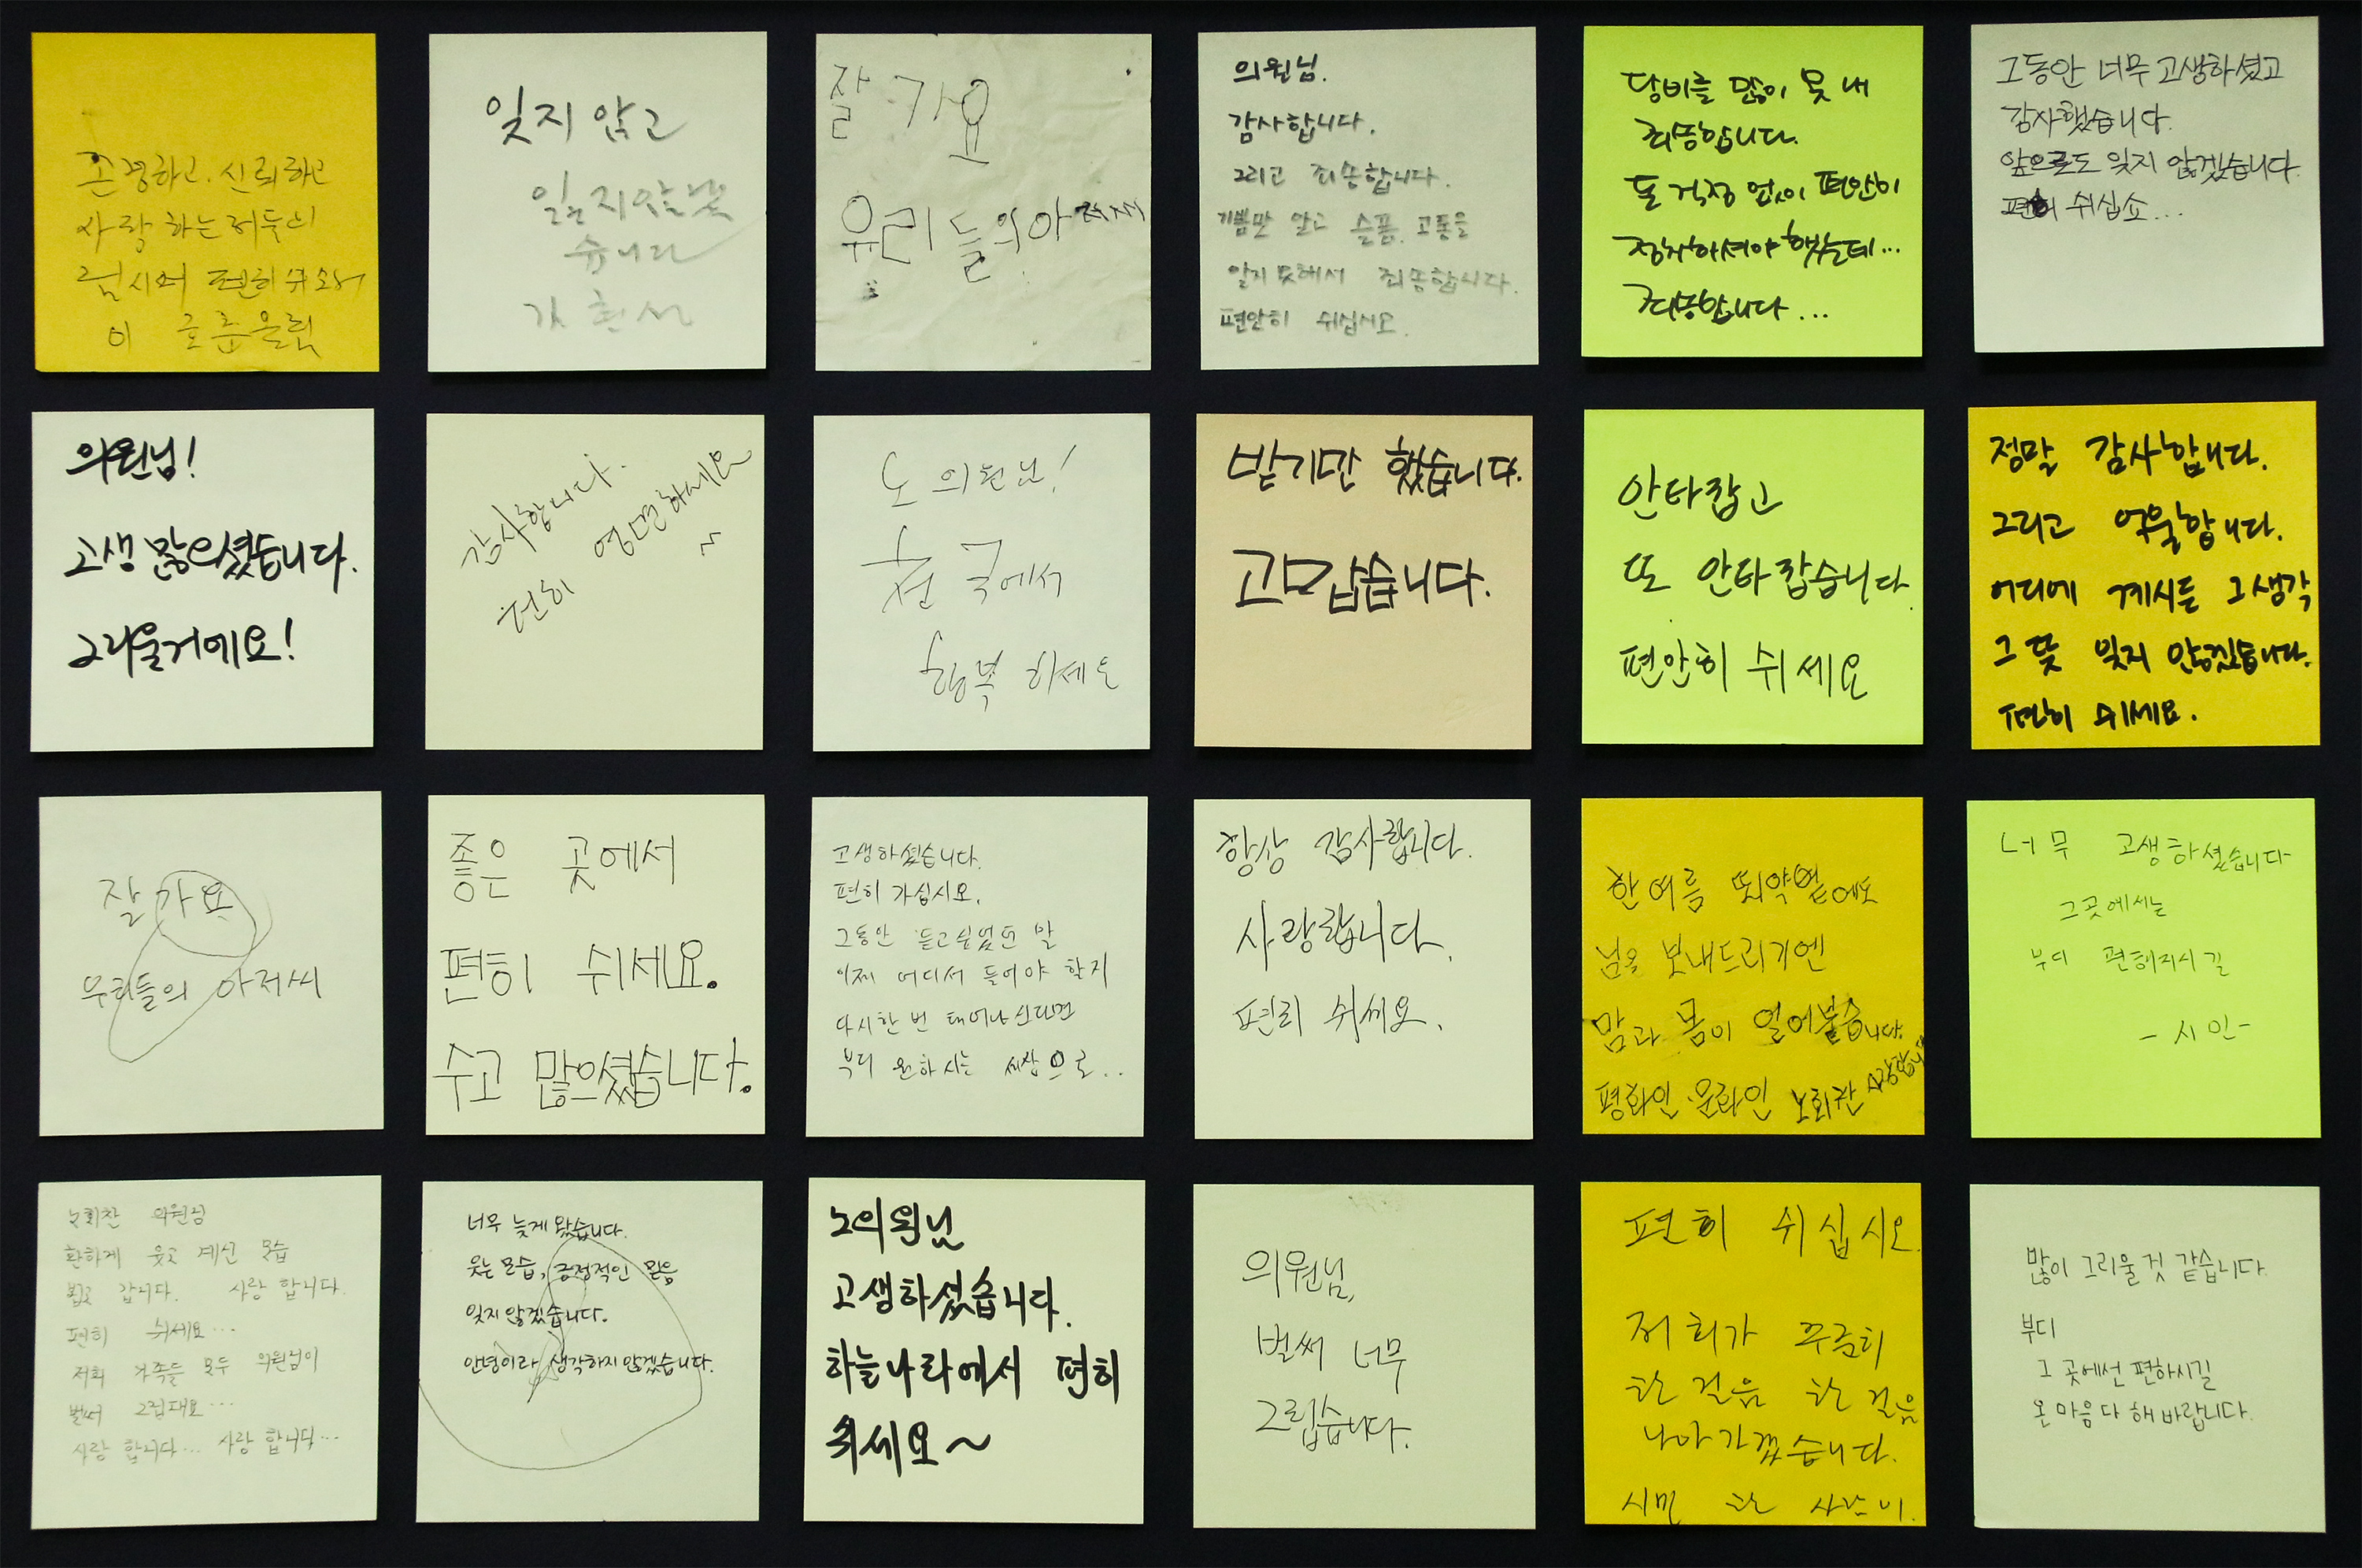 존경하고. 신뢰하고
사랑하는
편히 쉬소서
이
잊지 않고
잊지않겠
습니다
잘 가요
우리들의 아저씨
의원님.
감사합니다.
그리고 죄송합니다.
기쁨만 알고 슬픔. 고통을
알지 못해서 죄송합니다.
편안히 쉬십시오.
당비를 많이 못 내
죄송합니다.
돈 걱정 없이 편안히
정치하셔야 했는데...
죄송합니다...
그동안 너무 고생하셨고
감사했습니다.
앞으로도 잊지 않겠습니다.
편히 쉬십쇼...
의원님!
고생 많으셨습니다.
그리울거에요!
감사합니다.
편히 영면하세요
~
노 의원님!
천국에서
행복 하세요
받기만 했습니다.
고맙습니다.
안타깝고
또 안타깝습니다.
편안히 쉬세요
정말 감사합니다.
그리고 억울합니다.
어디에 계시든 그 생각
그 뜻 잊지 않겠습니다.
편히 쉬세요.
잘 가요
우리들의 아저씨
좋은 곳에서
편히 쉬세요.
수고 많으셨습니다.
고생하셨습니다.
편히 가십시오.
그동안 듣고싶었던 말
이제 어디서 들어야 할지
다시한번 태어나신다면
부디 원하시는 세상으로..
항상 감사합니다.
사랑합니다.
편히 쉬세요.
한여름 뙤약볕에도
님을 보내드리기엔
맘과 몸이 얼어붙습니다.
평화인·문화인 노회찬
너무 고생하셨습니다
그곳에서는
부디 편해지시길
- 시민-
노회찬 의원님
환하게 웃고 계신 모습
뵙고 갑니다. 사랑 합니다.
편히 쉬세요...
저희 가족들 모두 의원님이
벌써 그립대요...
사랑 합니다... 사랑 합니다...
너무 늦게 왔습니다.
웃는 모습, 긍정적인 믿음
잊지 않겠습니다.
안녕이라 생각하지 않겠습니다.
노의원님
고생하셨습니다.
하늘나라에서 편히
쉬세요~
의원님,
벌써 너무
그립습니다.
편히 쉬십시오.
저희가 꾸준히
한 걸음 한 걸음
나아가겠습니다.
시민 한 사람이.
많이 그리울 것 같습니다.
부디
그 곳에선 편하시길
온 마음 다 해 바랍니다.